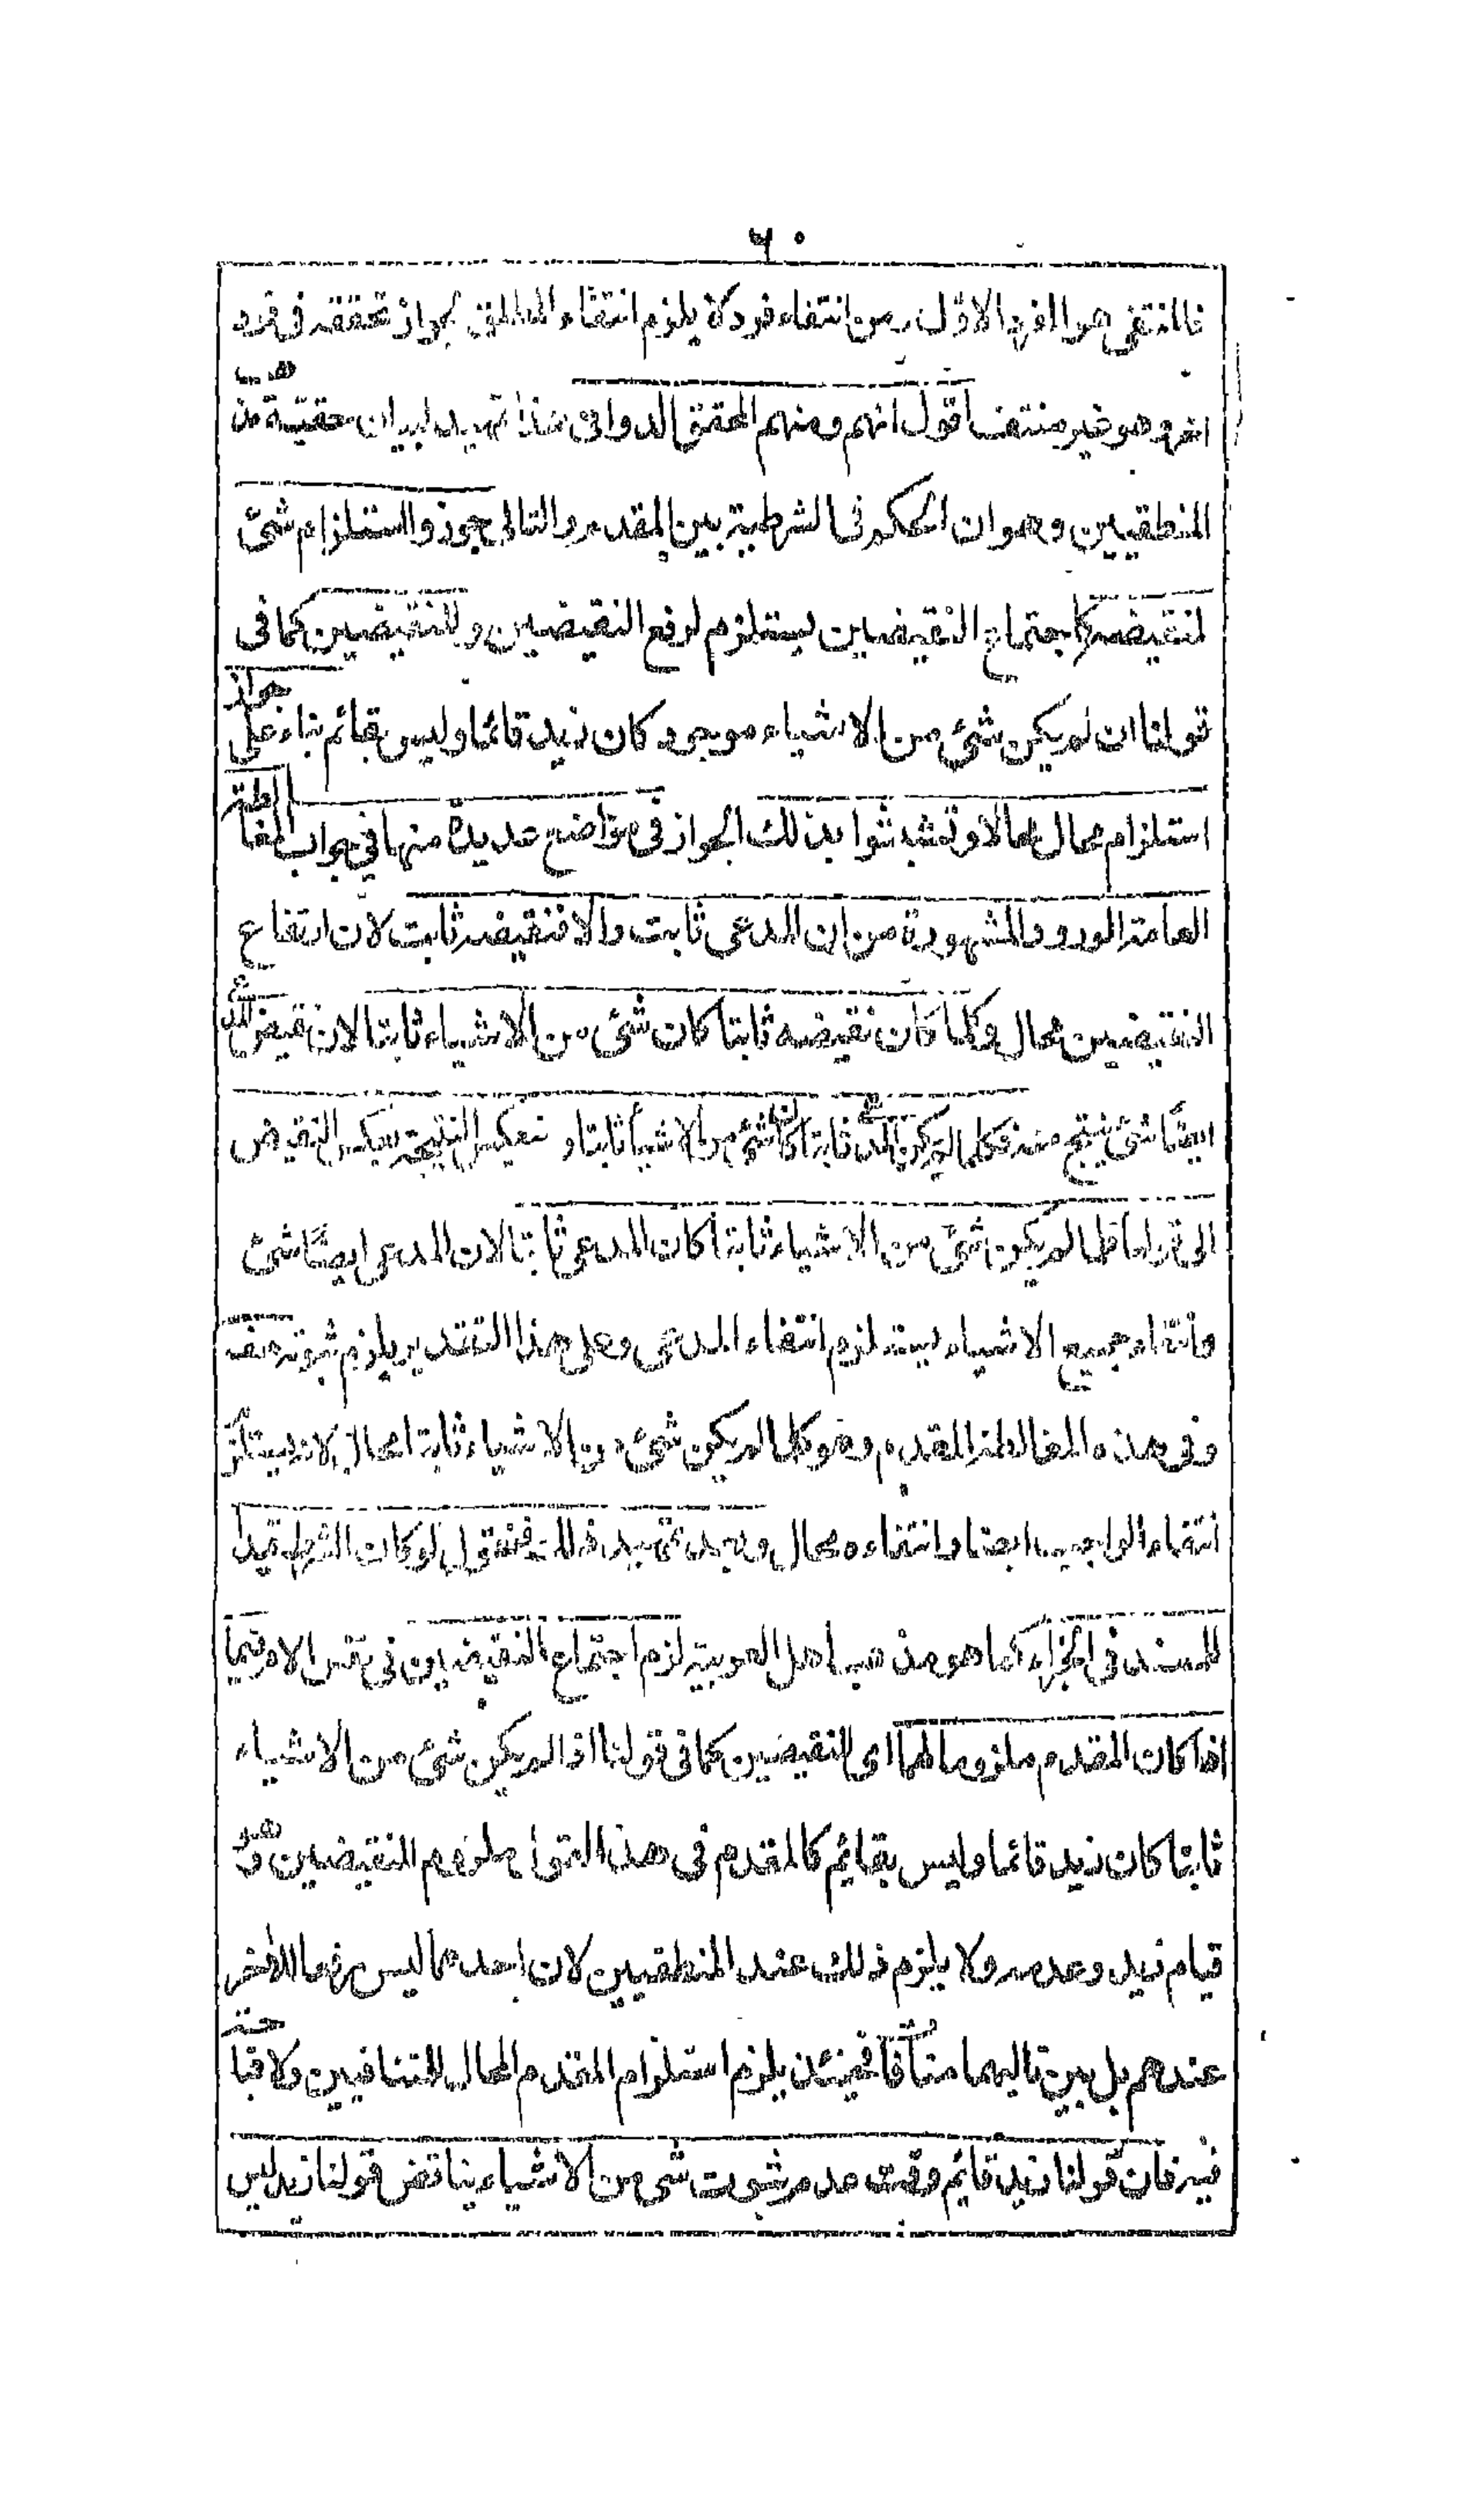 ٦٠
فالمنتفى هو الفرد الاول ومن انتفاء فرد لا يلزم انتفاء المطلق لجواز تحققه فى فرد
اخر وهو غير منتف اقول انهم ومنهم المحقق الدوانى هذا تمهيد لبيان حقيّة مذهب
المنطقيين وهو ان الحكم فى الشرطية بين المقدم والتالى جوزوا استلزام شئ
لنقيضه كاجتماع النقيضين يستلزم لرفع النقيضين وللنقيضين كما فى
قولنا ان لم يكن شئ من الاشياء موجود كان زيد قائما وليس بقائم بناء على جواز
استلزام محال محالا وتشبثوا بذلك الجواز فى مواضع عديدة منها فى جواب المغالطة
العامة الورود المشهورة من ان المدعى ثابت والا فنقيضه ثابت لان ارتفاع
النقيضين محال وكلما كان نقيضه ثابتا كان شئ من الاشياء ثابتا لان نقيض المدعى
ايضًا شئ ينتج منه فكلما لم يكن المدعى ثابتا كان شئ من الاشيأ ثابتا و تنعكس النتيجة بعكس النقيض
الى قولنا كلما لم يكن شئ من الاشياء ثابتا كان المدعى ثابتا لان المدعى ايضًا شئ
وانتفاء جميع الاشياء يستلزم انتفاء المدعى وعلى هذا التقدير يلزم ثبوته هف
وفى هذه المغالطة المقدم وهو كلما لم يكن شئ من الاشياء ثابتا محال لانه يستلزم
انتفاء الواجب ايضا وانتفاءه محال وبعد تمهيد ذلك فنقول لو كان الشرط قيدا
للمسند فى الجزاء كما هو مذهب اهل العربية لزم اجتماع النقيضين فى نفس الامر فيما
اذا كان المقدم ملزوما لهما اى للنقيضين كما فى قولنا اذا لم يكن شئ من الاشياء
ثابتا كان زيد قائما وليس بقائم كالمقدم فى هذا القول ملزوم النقيضين وهو
قيام زيد وعدمه ولا يلزم ذلك عند المنطقيين لان احدهما ليس رفعا للاخر
عندهم بل بين تاليهما منافاة فحينئذ يلزم استلزام المقدم المحال للمتنافيين ولا قباحة
فيه فان قولنا زيد قائم وقت عدم ثبوت شئ من الاشياء يناقض قولنا زيد ليس